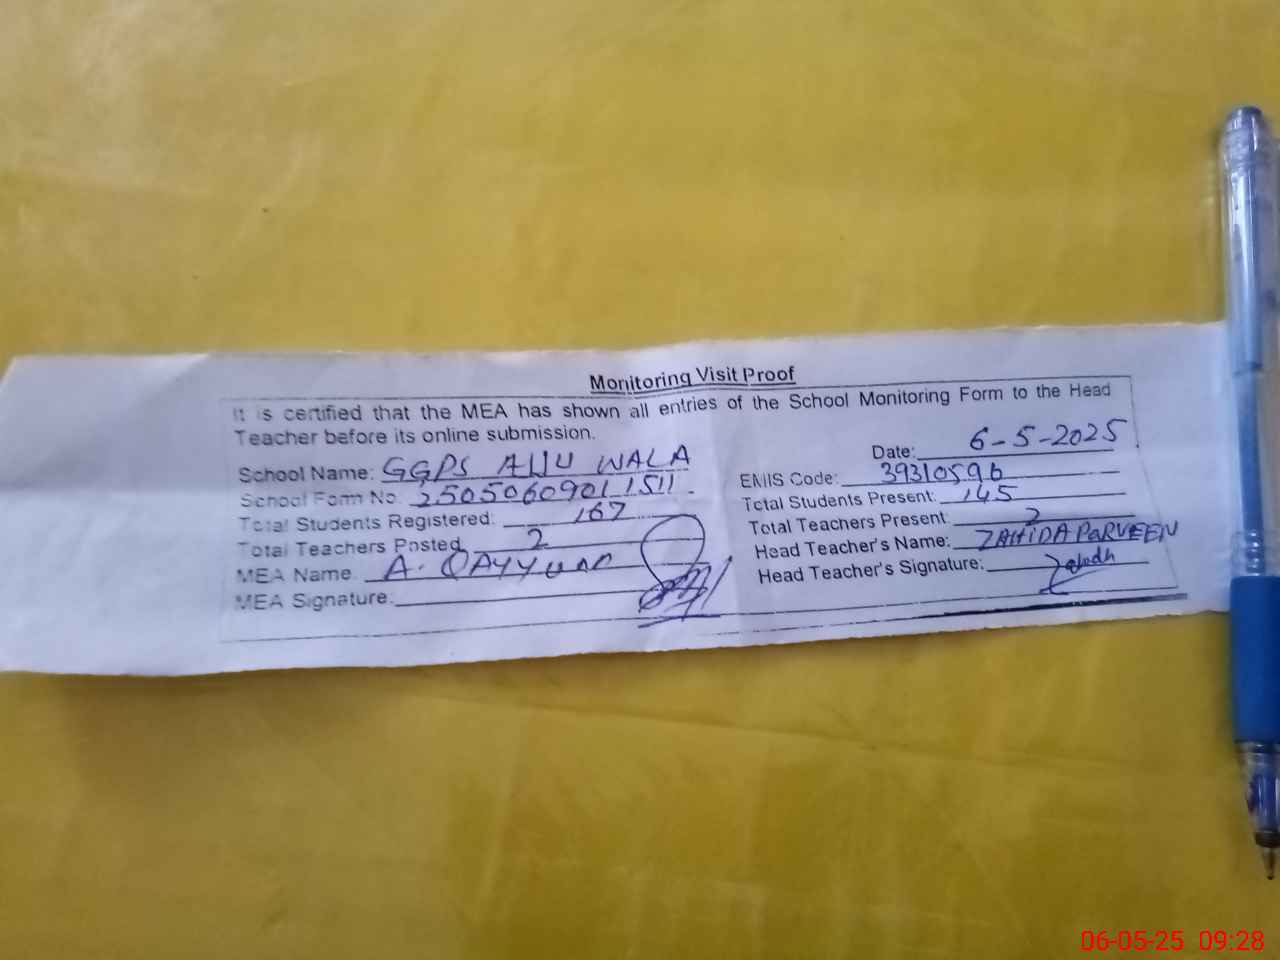 Monitoring Visit Proof
It is certified that the MEA has shown all entries of the School Monitoring Form to the Head
Teacher before its online submission.
Date: 6-5-2025
School Name: GGPS AJJU WALA
EMIS Code: 39310596
School Form No. 2505060901 1511
Total Students Present: 145
Total Students Registered: 167
Total Teachers Present: 2
Total Teachers Posted 2
Head Teacher's Name: ZAHIDA PARVEEN
MEA Name. A. QAYYUM
Head Teacher's Signature: Zahidh
MEA Signature:
06-05-25 09:28